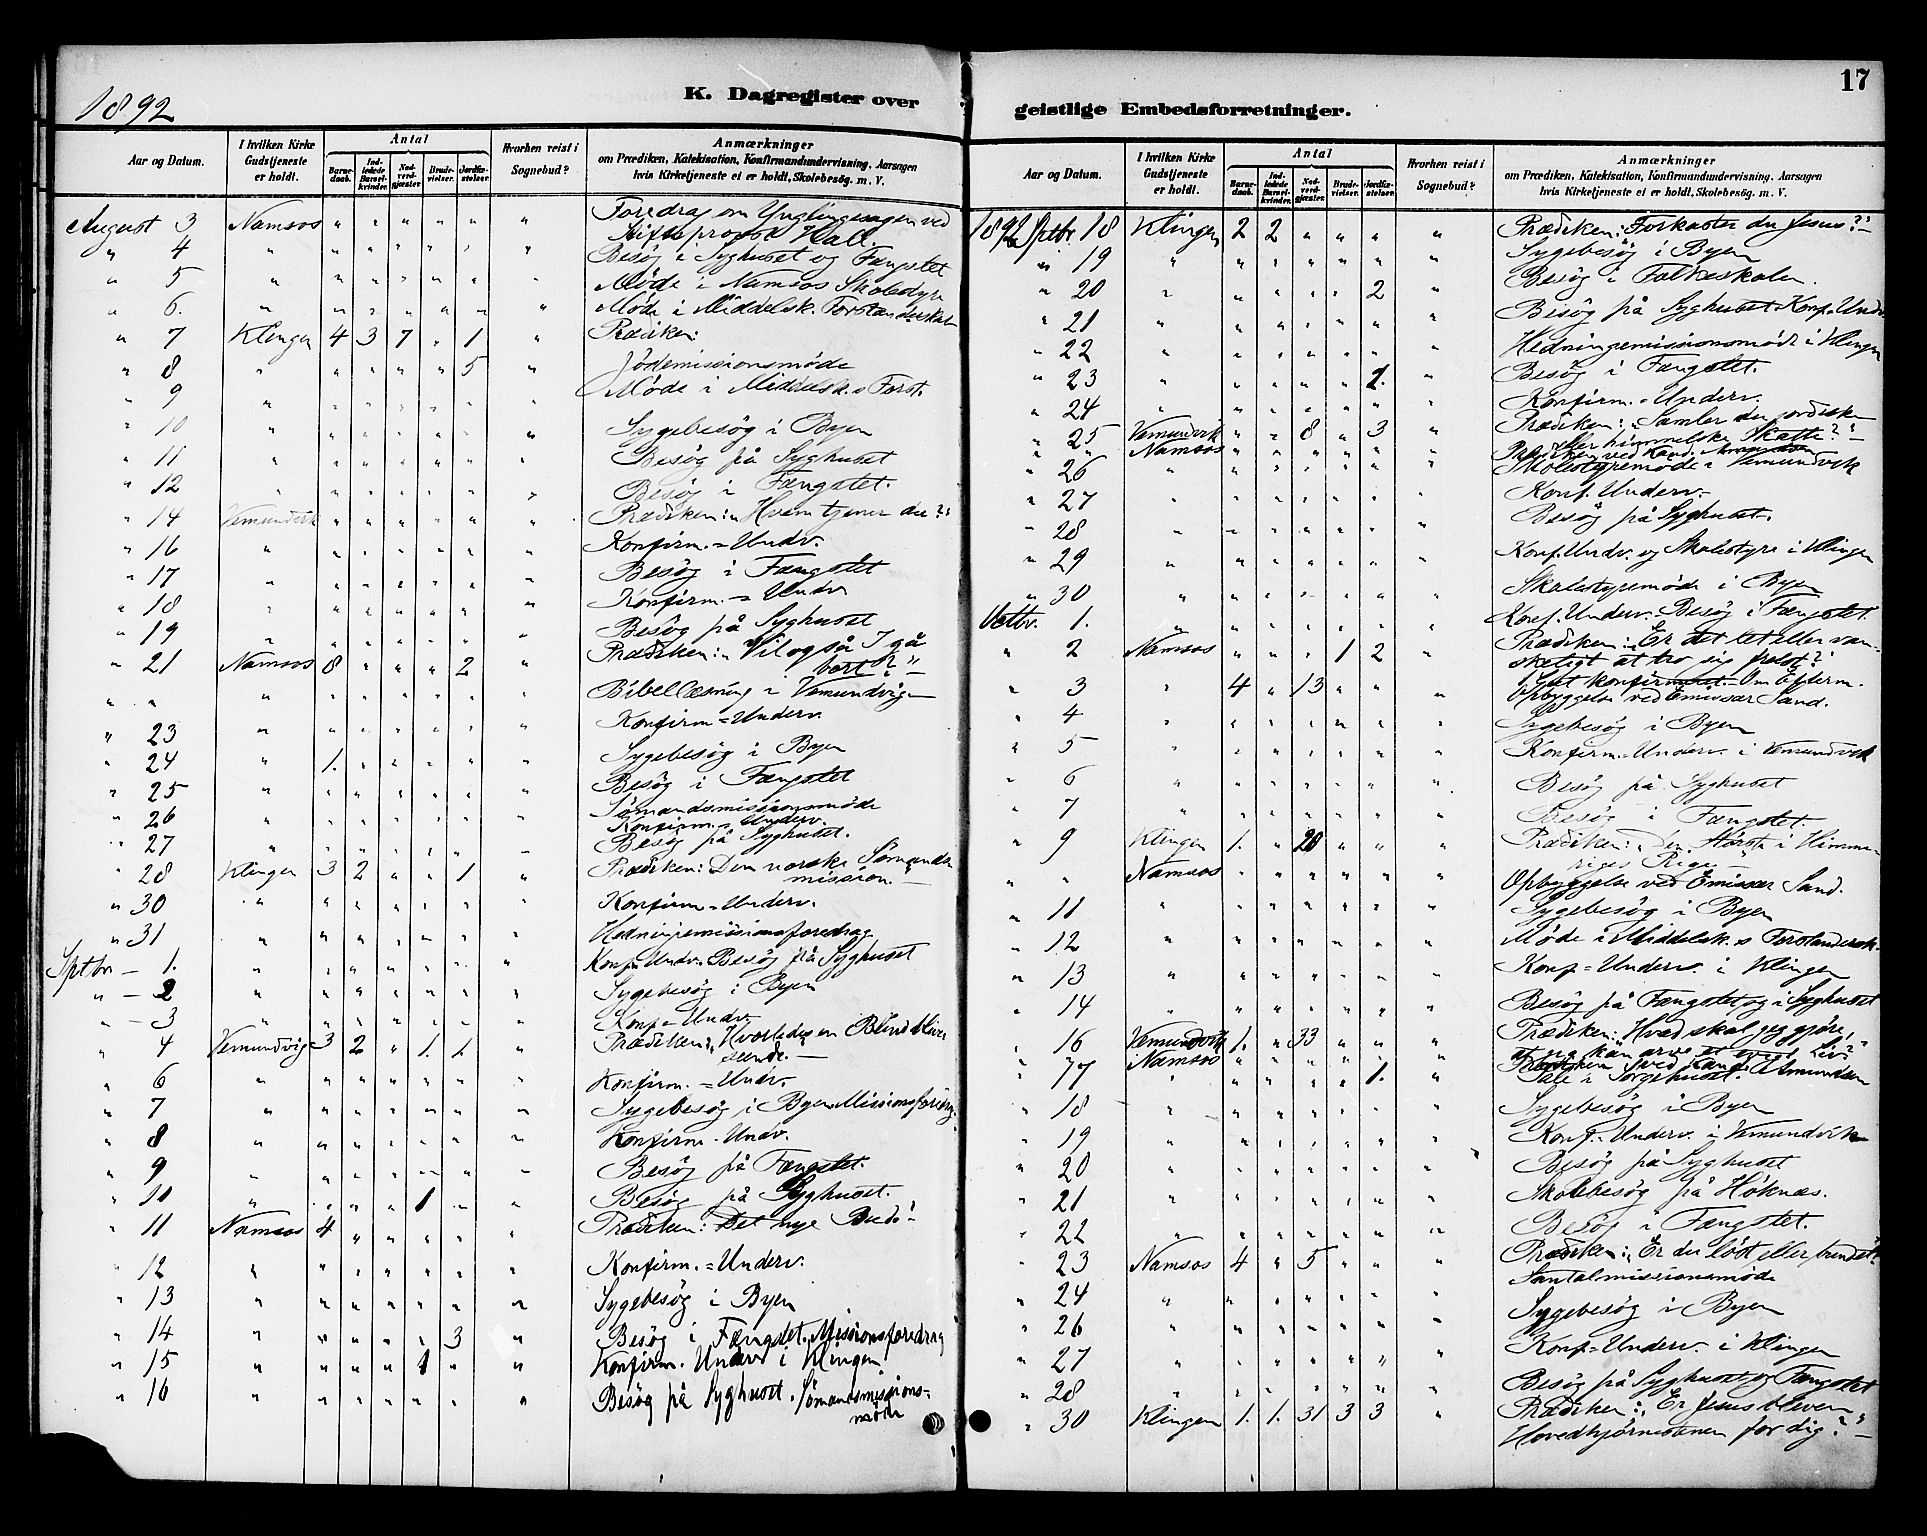 1892
K. Dagregister over
Aar og Datum.
I hvilken Kirke Gudstjeneste er holdt.
Antal
Barnedaab.
Indledede Barselkvinder.
Nadverdgjæster.
Brudevielser.
Jordfæstelser.
Hvorhen reist i Sognebud?
Anmærkninger
om Prædiken, Katekisation, Konfirmandundervisning, Aarsagen
hvis Kirketjeneste ei er holdt, Skolebesøg. m. V.
August 3 Namsos " " " " " " Foredrag om Ynglingesagen ved
Stiftsprovst Hall.
" 4 " " " " " " " Besøg i Syghuset og Fængslet
" 5 " " " " " " " Møde i Namsos Skolestyre
" 6. " " " " " " " Møde i Middelsk. Forstanderskab
" 7 Klingen 4 3 7 " 1 " Prædiken:
" 8 " " " " " 5 " Jødemissionsmøde
" 9 " " " " " " " Møde i Middelsk. Forst.
" 10 " " " " " " " Sygebesøg i Byen
" 11 " " " " " " " Besøg på Syghuset
" 12 " " " " " " " Besøg i Fængslet.
" 14 Vemundvik " " " " " " Prædiken: "Hvem tjener du?"
" 16 " " " " " " " Konfirm. = Undv.
" 17 " " " " " " " Besøg i Fængslet
" 18 " " " " " " " Konfirm. = Undv
" 19 " " " " " " " Besøg på Syghuset
" 21 Namsos 8 " " " 2 " Prædiken: "Vil også I gå
bort?" –
" " " " " " " " " Bibellæsning i Vemundvig
" 23 " " " " " " " Konfirm = Underv.
" 24 " 1. " " " " " Sygebesøg i Byen
" 25 " " " " " " " Besøg i Fængslet
" 26 " " " " " " " Sømandsmissionsmøde
Konfirm. = Underv.
" 27 " " " " " " " Besøg på Syghuset.
" 28 Klingen 3 2 " " 1 " Prædiken: Den norske Sømands
mission." –
" 30 " " " " " " " Konfirm = Underv.
" 31 " " " " " " " Hedningemissionsforedrag
Sptbr – 1. " " " " " " " Konf. Undv. Besøg på Syghuset
" – 2 " " " " " " " Sygebesøg i Byen
" – 3 " " " " " " " Konf = Undv.
" 4 Vemundvig 3 2 " 1. 1. " Prædiken: "Hvorledes en Blind bliver
seende. –
" 6 " " " " " " " Konfirm. = Undv.
" 7 " " " " " " " Sygebesøg i Byen. Missionsforedrag.
" 8 " " " " " " " Konfirm = Undv.
" 9 " " " " " " " Besøg på Fængslet.
" 10 " " " " 1 " " Besøg på Syghuset.
" 11 Namsos 4 " " " " " Prædiken: Det nye Bud."
" 12 " " " " " " " Konfirm. = Underv.
" 13 " " " " " " " Sygebesøg i Byen
" 14 " " " " " 3 " Besøg i Fængslet. Missionsforedrag
" 15 " " " " 1 " " Konfirm. Underv i Klingen
" 16 " " " " " " " Besøg på Syghuset. Sømandsmissions-
møde
17
geistlige Embedsforretninger.
Aar og Datum.
I hvilken Kirke Gudstjeneste er holdt.
Antal
Barnedaab.
Indledede Barselkvinder.
Nadverdgjæster.
Brudevielser.
Jordfæstelser.
Hvorhen reist i Sognebud?
Anmærkninger
om Prædiken, Katekisation, Konfirmandundervisning, Aarsagen
hvis Kirketjeneste ei er holdt, Skolebesøg. m. V.
1892 Sptbr. 18 Klingen 2 2 " " " " Prædiken: Forkaster du Jesus?" –
" 19 " " " " " " " Sygebesøg i Byen
" 20 " " " " " 2 " Besøg i Folkeskolen.
" 21 " " " " " " " Besøg på Syghuset. Konf. Undv.
" 22 " " " " " " " Hedningemissionsmøde i Klingen
" 23 " " " " " 1. " Besøg i Fængslet.
" 24 " " " " " " " Konfirm. = Underv.
" 25 Vemundvik " " 8 " 3 " Prædiken: "Samler du jordiske
eller himmelske Skatte?" –
" " Namsos " " " " " " Prædiken ved Kand. Amundsen
" 26 " " " " " " " Skolestyremøde i Vemundvik
" 27 " " " " " " " Konf. Underv.
" 28 " " " " " " " Besøg på Syghuset.
" 29 " " " " " " " Konf. Undv. og Skolestyre i Klingen
" 30 " " " " " " " Skolestyremøde i Byen
Octbr. 1. " " " " " " " Konf. Underv. Besøg i Fængslet.
" 2 Namsos " " " 1 2 " Prædiken: "Er det let eller van-
skeligt at tro sig frelst?"
" 3 " 4 " 13 " " " konfirmeret. – Om Efterm.
Opbyggelse ved Emissær Sand.
" 4 " " " " " " " Sygebesøg i Byen
" 5 " " " " " " " Konfirm = Underv. i Vemundvik
" 6 " " " " " " " Besøg på Syghuset
" 7 " " " " " " " Besøg i Fængslet.
" 9 Klingen 1. " 20 " " " Prædiken: "Den Største i Himme-
riges Rige" –
" " Namsos " " " " " " Opbyggelse ved Emissær Sand.
" 11 " " " " " " " Sygebesøg i Byen
" 12 " " " " " " " Møde i Middelsk. s Forstandersk.
" 13 " " " " " " " Konf = Underv. i Klingen
" 14 " " " " " " " Besøg på Fængslet og i Syghuset
" 16 Vemundvik 1. " 33 " " " Prædiken: "Hvad skal jeg gjøre,
at jeg kan arve et evigt Liv?"
" Namsos " " " " " " Prædiken ved Kand. Amundsen
" 17 " " " " " 1. " Tale i Sørgehuset.
" 18 " " " " " " " Sygebesøg i Byen
" 19 " " " " " " " Konf. = Underv. i Vemundvik
" 20 " " " " " " " Besøg på Syghuset
" 21 " " " " " " " Skolebesøg på Høknæs.
" 22 " " " " " " " Besøg i Fængslet.
" 23 Namsos 4 " 5 " " " Prædiken: "Er du løst eller bundet?"
" 24 " " " " " " " Santalmissionsmøde
" 26 " " " " " " " Sygebesøg i Byen
" 27 " " " " " " " Konf = Underv. i Klingen
" 28 " " " " " " " Besøg på Syghuset og Fængslet
" 30 Klingen 1. 1. 31 3 3 " Prædiken: "Er Jesus bleven
Hovedhjørnestenen for dig?" –